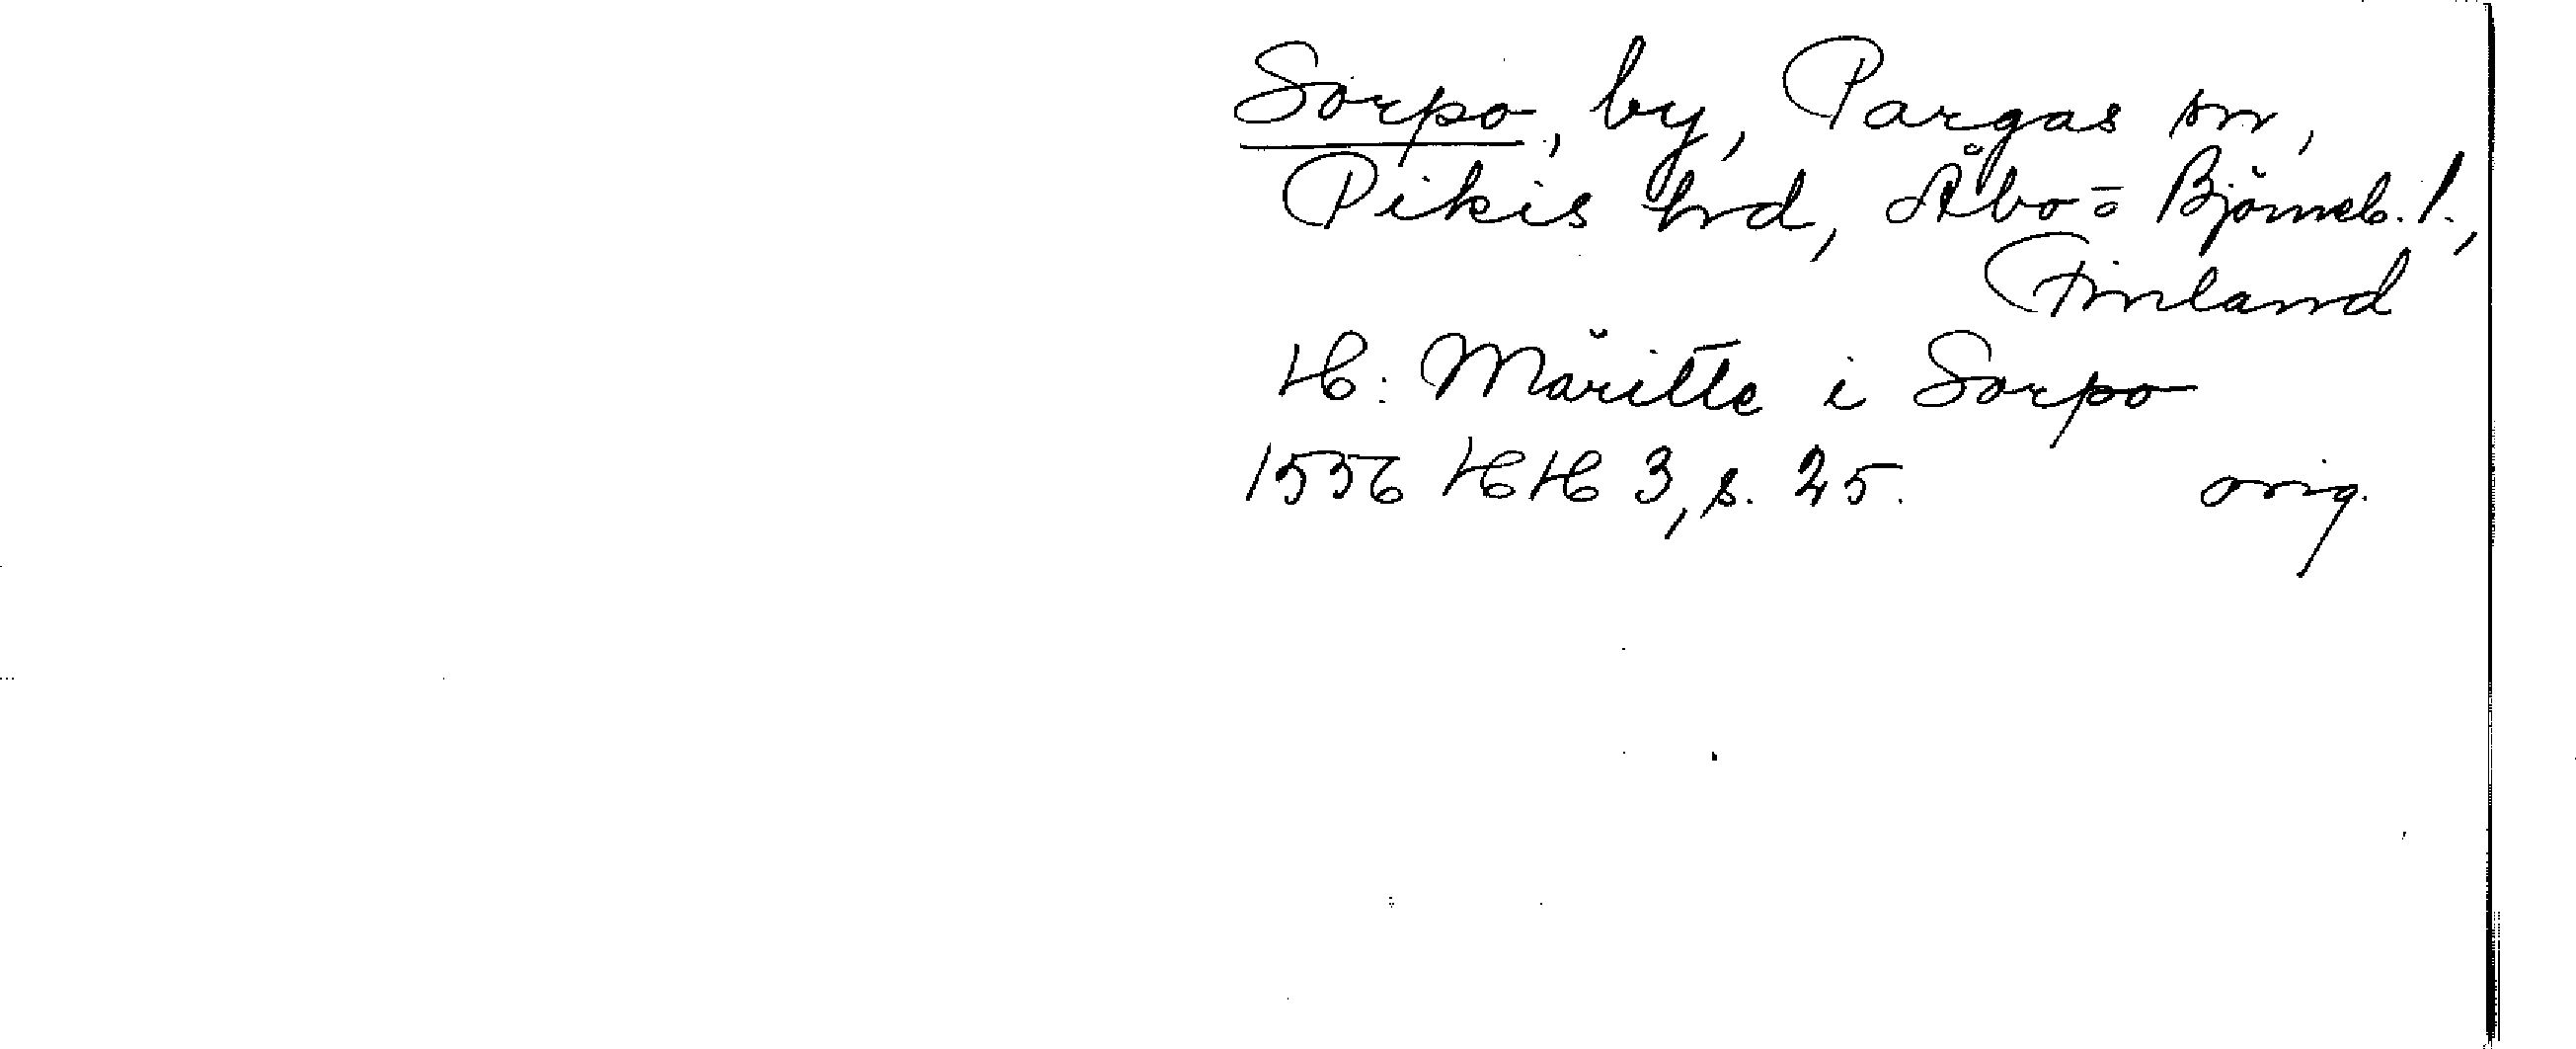 Sorpo, by, Pargas sn,
Pikis hrd, Åbo- o Björneb. l.,
Finland
H: Märitte i Sorpo
1556 HH 3, s. 25. orig.